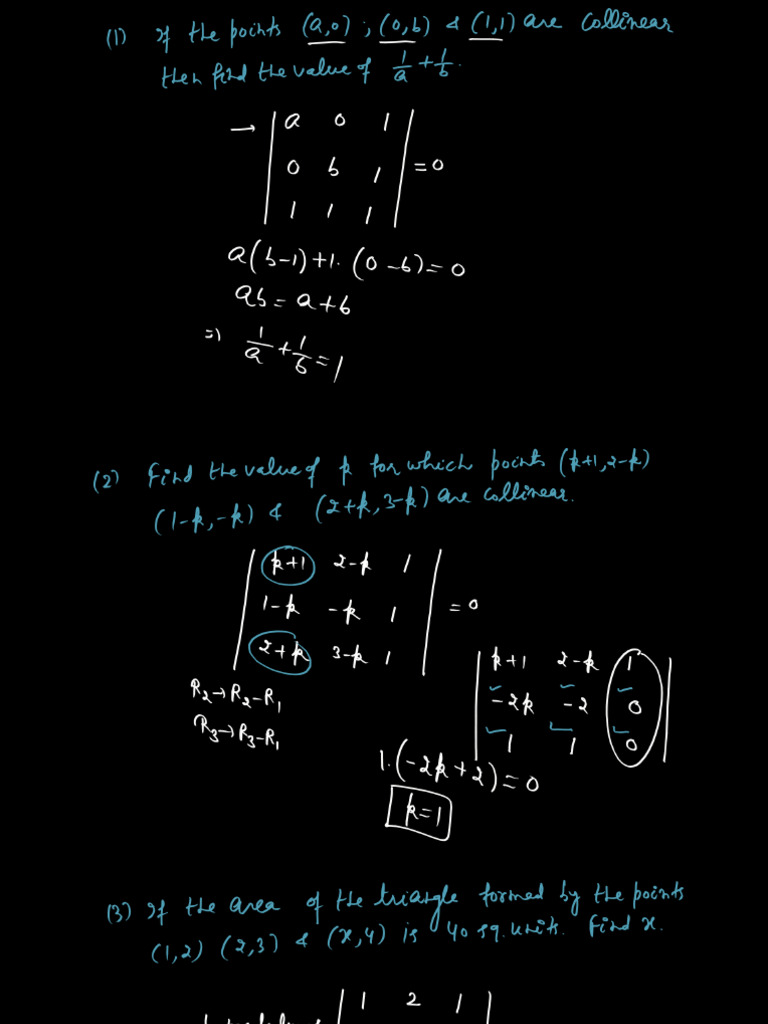 (1) If the points (a,0) ; (0,b) & (1,1) are collinear
then find the value of 1/a + 1/b.
→ | a 0 1 |
| 0 b 1 | = 0
| 1 1 1 |
a(b-1)+1.(0-b)=0
ab = a+b
=> 1/a + 1/b = 1
(2) Find the value of k for which points (k+1,2-k)
(1-k,-k) & (2+k,3-k) are collinear.
| k+1 2-k 1 |
| 1-k -k 1 | = 0
| 2+k 3-k 1 |
R2→R2-R1
R3→R3-R1
| k+1 2-k 1 |
| -2k -2 0 |
| 1 1 0 |
1.(-2k+2)=0
k=1
(3) If the area of the triangle formed by the points
(1,2) (2,3) & (x,4) is 40 sq. units. Find x.
| 1 2 1 |